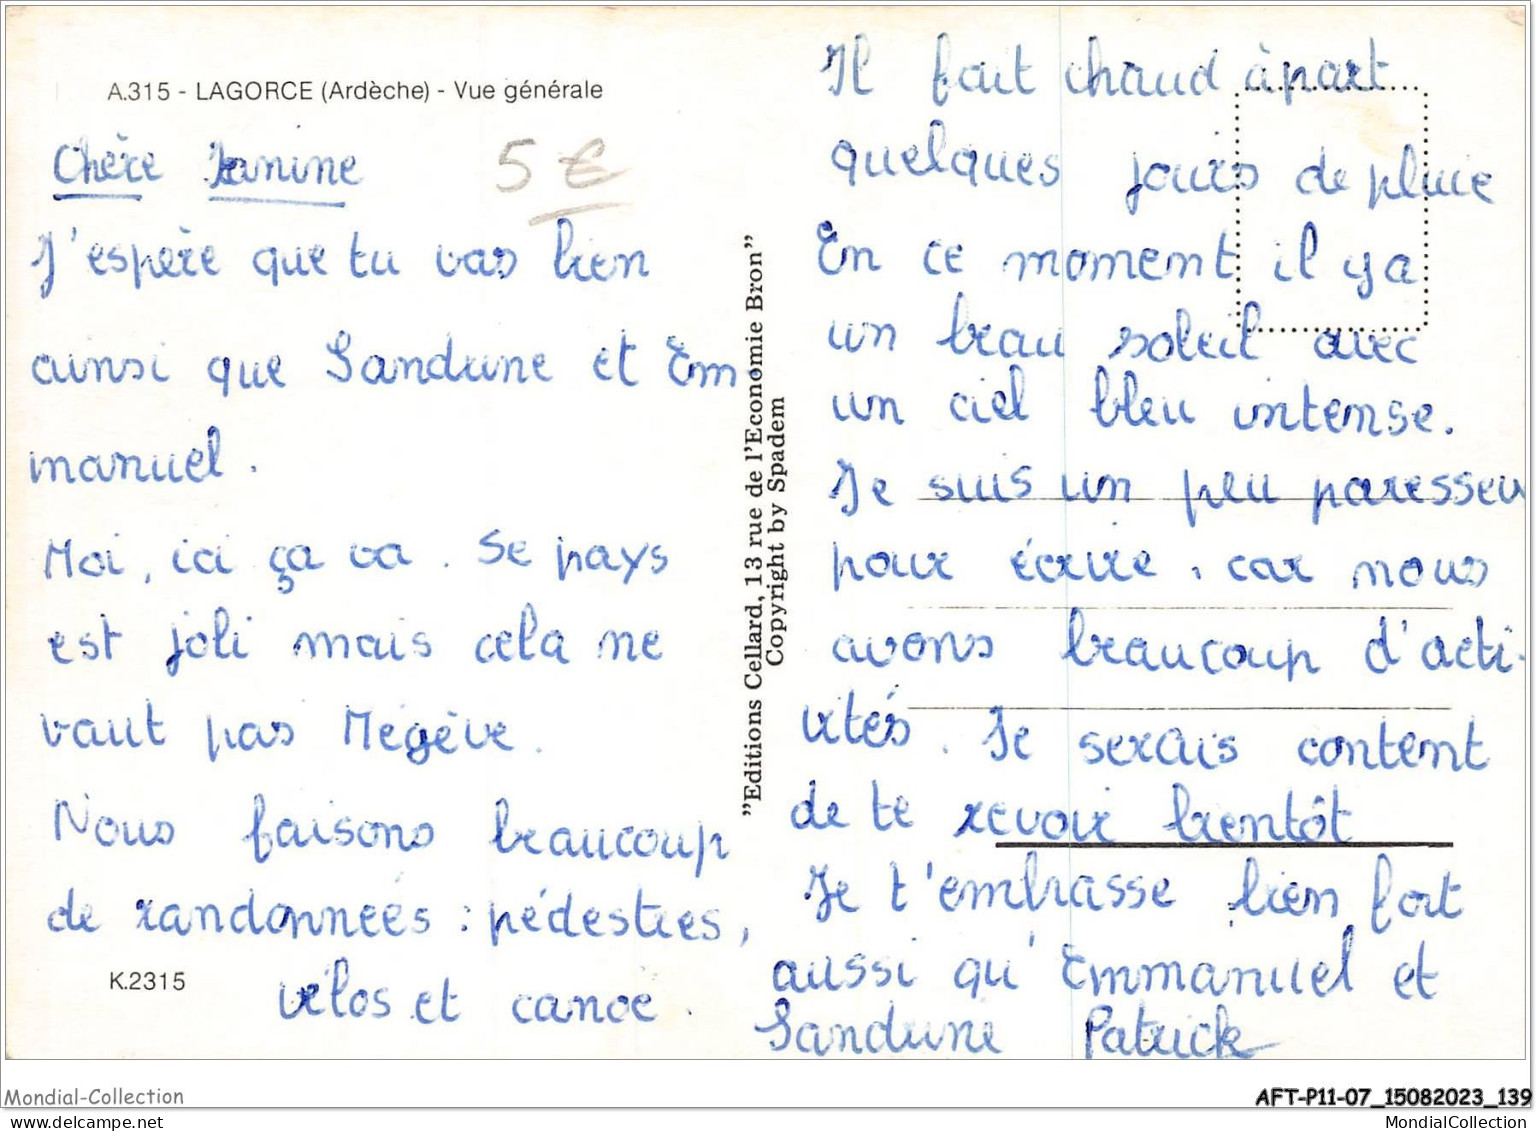 A.315 - LAGORCE (Ardèche) - Vue générale
Chère Janine
5 €
J'espère que tu vas bien
ainsi que Sandrine et Em
manuel.
Moi, ici ça va. Se pays
est joli mais cela ne
vaut pas Megève.
Nous faisons beaucoup
de randonnées : pédestres,
vélos et canoë.
K.2315
"Editions Cellard, 13 rue de l'Economie Bron"
Copyright by Spadem
Il fait chaud àpart
quelques jours de pluie
En ce moment il y a
un beau soleil avec
un ciel bleu intense.
Je suis un peu paresseu
pour écrire, car nous
avons beaucoup d'acti-
vités. Je serais content
de te revoir bientôt
Je t'embrasse bien fort
aussi qu'Emmanuel et
Sandrine Patrick
Mondial-Collection
AFT-P11-07_15082023_139
www.delcampe.net
MondialCollection